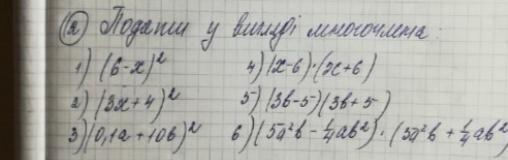 (2) Подати у вигляді многочлена:
1) (6-x)² 4) (x-6)·(x+6)
2) (3x+4)² 5) (3b-5)(3b+5)
3) (0,1a+10b)² 6) (5a²b-¼ab²)·(5a²b+¼ab²